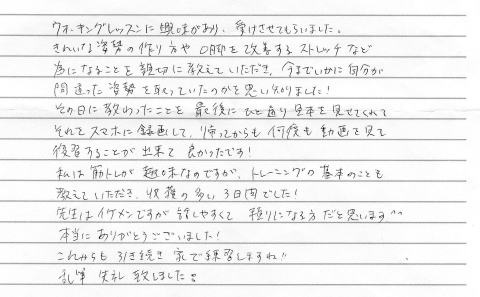 ウォーキングレッスンに興味があり、受けさせてもらいました。
きれいな姿勢の作り方や O脚を改善するストレッチなど
為になることを親切に教えていただき、今までいかに自分が
間違った姿勢を取っていたのかを思い知りました!
その日に教わったことを 最後に ひと通り見本を見せてくれて
それを スマホに録画して、帰ってからも何度も動画を見て
復習することが出来て 良かったです!
私は筋トレが趣味なのですが、トレーニングの基本のことも
教えていただき、収穫の多い 3日間でした!
先生はイケメンですが 話しやすくて 頼りになる方だと思います^^
本当にありがとうございました!
これからも 引き続き 家で練習しますね!!
乱筆 失礼致しました。